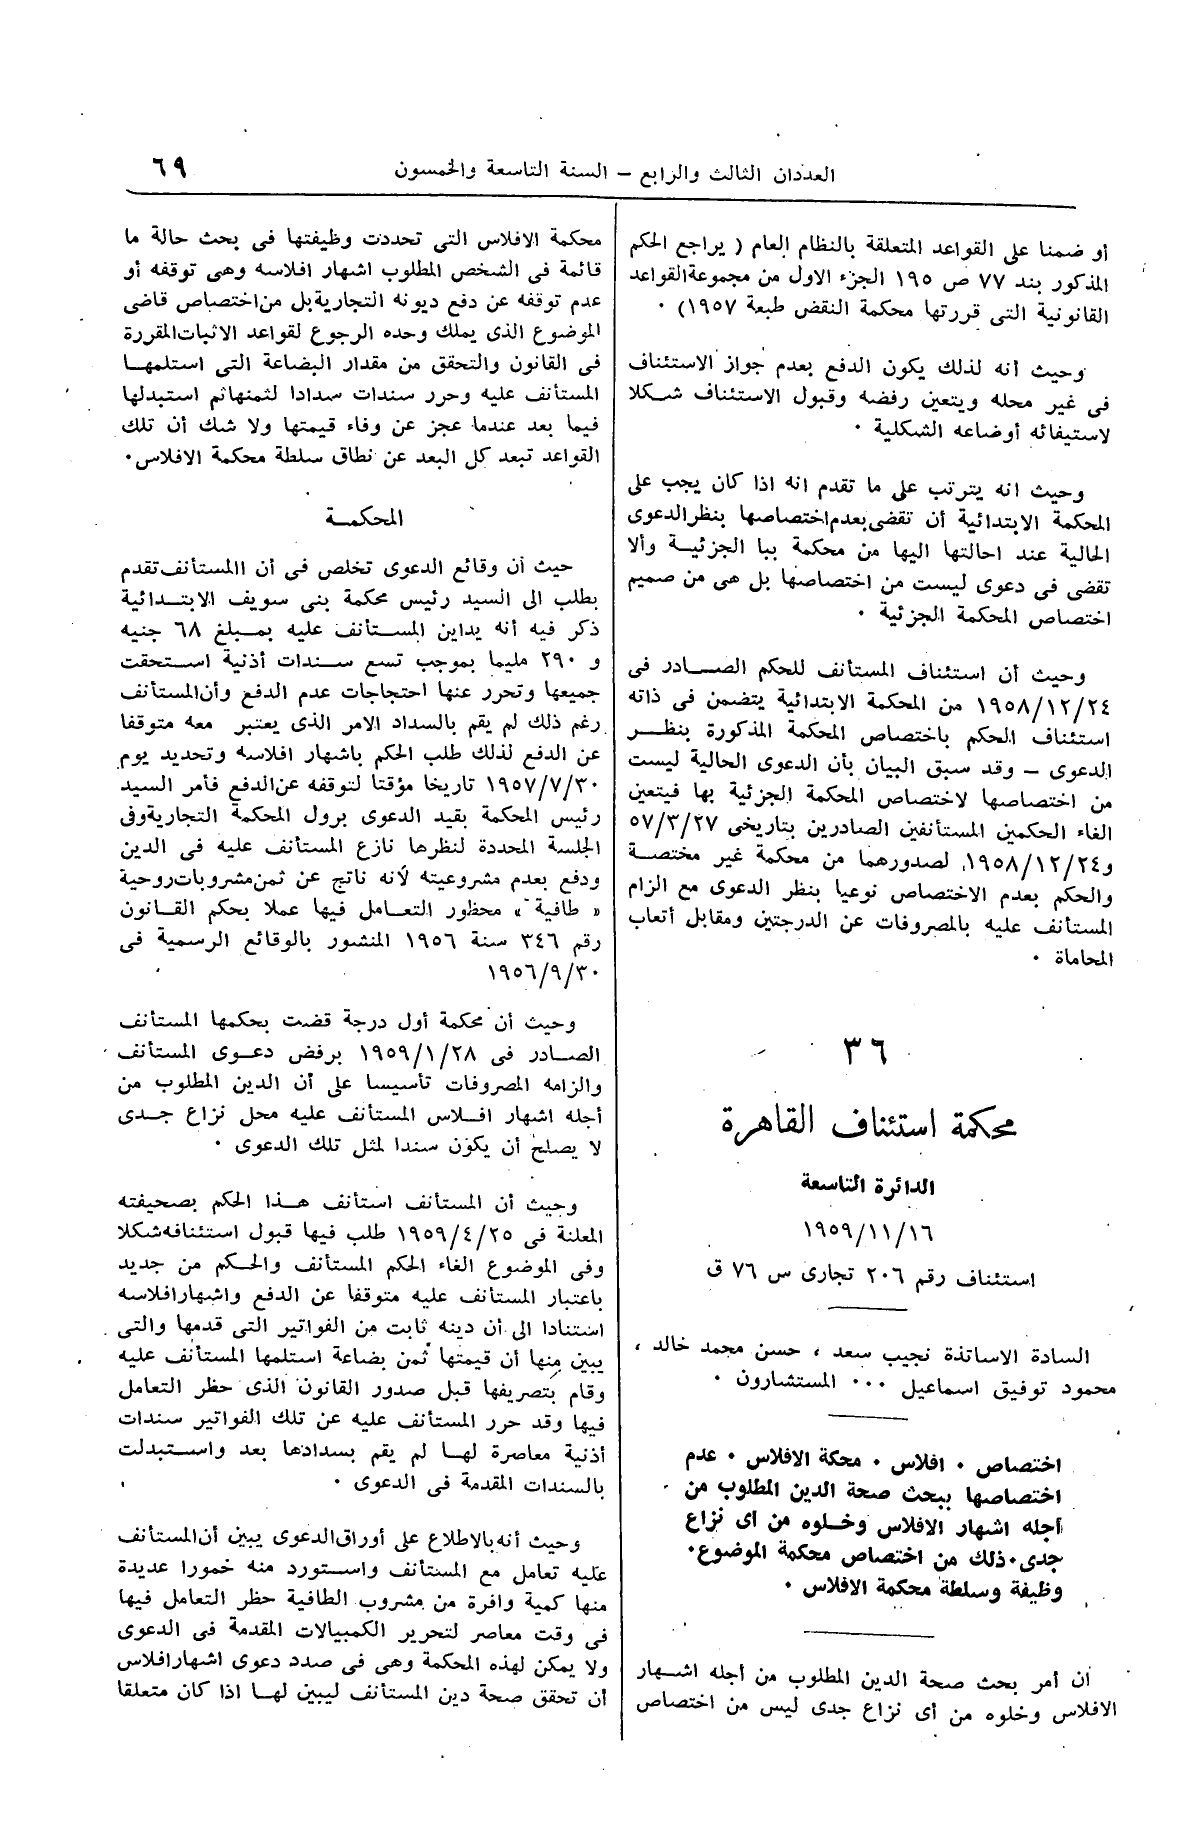 العددان الثالث والرابع – السنة التاسعة والخمسون
٦٩
أو ضمنا على القواعد المتعلقة بالنظام العام ( يراجع الحكم
المذكور بند ٧٧ ص ١٩٥ الجزء الاول من مجموعة القواعد
القانونية التى قررتها محكمة النقض طبعة ١٩٥٧) ٠
وحيث أنه لذلك يكون الدفع بعدم جواز الاستئناف
فى غير محله ويتعين رفضه وقبول الاستئناف شكلا
لاستيفائه أوضاعه الشكلية ٠
وحيث انه يترتب على ما تقدم انه اذا كان يجب على
المحكمة الابتدائية أن تقضى بعدم اختصاصها بنظر الدعوى
الحالية عند احالتها اليها من محكمة ببا الجزئية وألا
تقضى فى دعوى ليست من اختصاصها بل هى من صميم
اختصاص المحكمة الجزئية ٠
وحيث أن استئناف المستأنف للحكم الصادر فى
١٩٥٨/١٢/٢٤ من المحكمة الابتدائية يتضمن فى ذاته
استئناف الحكم باختصاص المحكمة المذكورة بنظر
الدعوى – وقد سبق البيان بأن الدعوى الحالية ليست
من اختصاصها لاختصاص المحكمة الجزئية بها فيتعين
الغاء الحكمين المستأنفين الصادرين بتاريخى ٥٧/٣/٢٧
و١٩٥٨/١٢/٢٤ لصدورهما من محكمة غير مختصة
والحكم بعدم الاختصاص نوعيا بنظر الدعوى مع الزام
المستأنف عليه بالمصروفات عن الدرجتين ومقابل أتعاب
المحاماة ٠
٣٦
محكمة استئناف القاهرة
الدائرة التاسعة
١٩٥٩/١١/١٦
استئناف رقم ٢٠٦ تجارى س ٧٦ ق
السادة الاساتذة نجيب سعد ، حسن محمد خالد ،
محمود توفيق اسماعيل ٠٠٠ المستشارون ٠
اختصاص ٠ افلاس ٠ محكة الافلاس ٠ عدم
اختصاصها ببحث صحة الدين المطلوب من
أجله اشهار الافلاس وخلوه من اى نزاع
جدى٠ذلك من اختصاص محكمة الموضوع٠
وظيفة وسلطة محكمة الافلاس ٠
ان أمر بحث صحة الدين المطلوب من أجله اشهار
الافلاس وخلوه من أى نزاع جدى ليس من اختصاص
محكمة الافلاس التى تحددت وظيفتها فى بحث حالة ما
قائمة فى الشخص المطلوب اشهار افلاسه وهى توقفه أو
عدم توقفه عن دفع ديونه التجارية بل من اختصاص قاضى
الموضوع الذى يملك وحده الرجوع لقواعد الاثبات المقررة
فى القانون والتحقق من مقدار البضاعة التى استلمها
المستأنف عليه وحرر سندات سدادا لثمنها ثم استبدلها
فيما بعد عندما عجز عن وفاء قيمتها ولا شك أن تلك
القواعد تبعد كل البعد عن نطاق سلطة محكمة الافلاس٠
المحكمة
حيث أن وقائع الدعوى تخلص فى أن االمستأنف تقدم
بطلب الى السيد رئيس محكمة بنى سويف الابتدائية
ذكر فيه أنه يداين المستأنف عليه بمبلغ ٦٨ جنيه
و ٢٩٠ مليما بموجب تسع سندات أذنية استحقت
جميعها وتحرر عنها احتجاجات عدم الدفع وأن المستأنف
رغم ذلك لم يقم بالسداد الامر الذى يعتبر معه متوقفا
عن الدفع لذلك طلب الحكم باشهار افلاسه وتحديد يوم
١٩٥٧/٧/٣٠ تاريخا مؤقتا لتوقفه عن الدفع فأمر السيد
رئيس المحكمة بقيد الدعوى برول المحكمة التجارية وفى
الجلسة المحددة لنظرها نازع المستأنف عليه فى الدين
ودفع بعدم مشروعيته لأنه ناتج عن ثمن مشروبات روحية
« طافية » محظور التعامل فيها عملا بحكم القانون
رقم ٣٤٦ سنة ١٩٥٦ المنشور بالوقائع الرسمية فى
١٩٥٦/٩/٣٠
وحيث أن محكمة أول درجة قضت بحكمها المستأنف
الصادر فى ١٩٥٩/١/٢٨ برفض دعوى المستأنف
والزامه المصروفات تأسيسا على أن الدين المطلوب من
أجله اشهار افلاس المستأنف عليه محل نزاع جدى
لا يصلح أن يكون سندا لمثل تلك الدعوى ٠
وحيث أن المستأنف استأنف هذا الحكم بصحيفته
المعلنة فى ١٩٥٩/٤/٢٥ طلب فيها قبول استئنافه شكلا
وفى الموضوع الغاء الحكم المستأنف والحكم من جديد
باعتبار المستأنف عليه متوقفا عن الدفع واشهار افلاسه
استنادا الى أن دينه ثابت من الفواتير التى قدمها والتى
يبين منها أن قيمتها ثمن بضاعة استلمها المستأنف عليه
وقام بتصريفها قبل صدور القانون الذى حظر التعامل
فيها وقد حرر المستأنف عليه عن تلك الفواتير سندات
أذنية معاصرة لها لم يقم بسدادها بعد واستبدلت
بالسندات المقدمة فى الدعوى ٠
وحيث أنه بالاطلاع على أوراق الدعوى يبين أن المستأنف
عليه تعامل مع المستأنف واستورد منه خمورا عديدة
منها كمية وافرة من مشروب الطافية حظر التعامل فيها
فى وقت معاصر لتحرير الكمبيالات المقدمة فى الدعوى
ولا يمكن لهذه المحكمة وهى فى صدد دعوى اشهار افلاس
أن تحقق صحة دين المستأنف ليبين لها اذا كان متعلقا